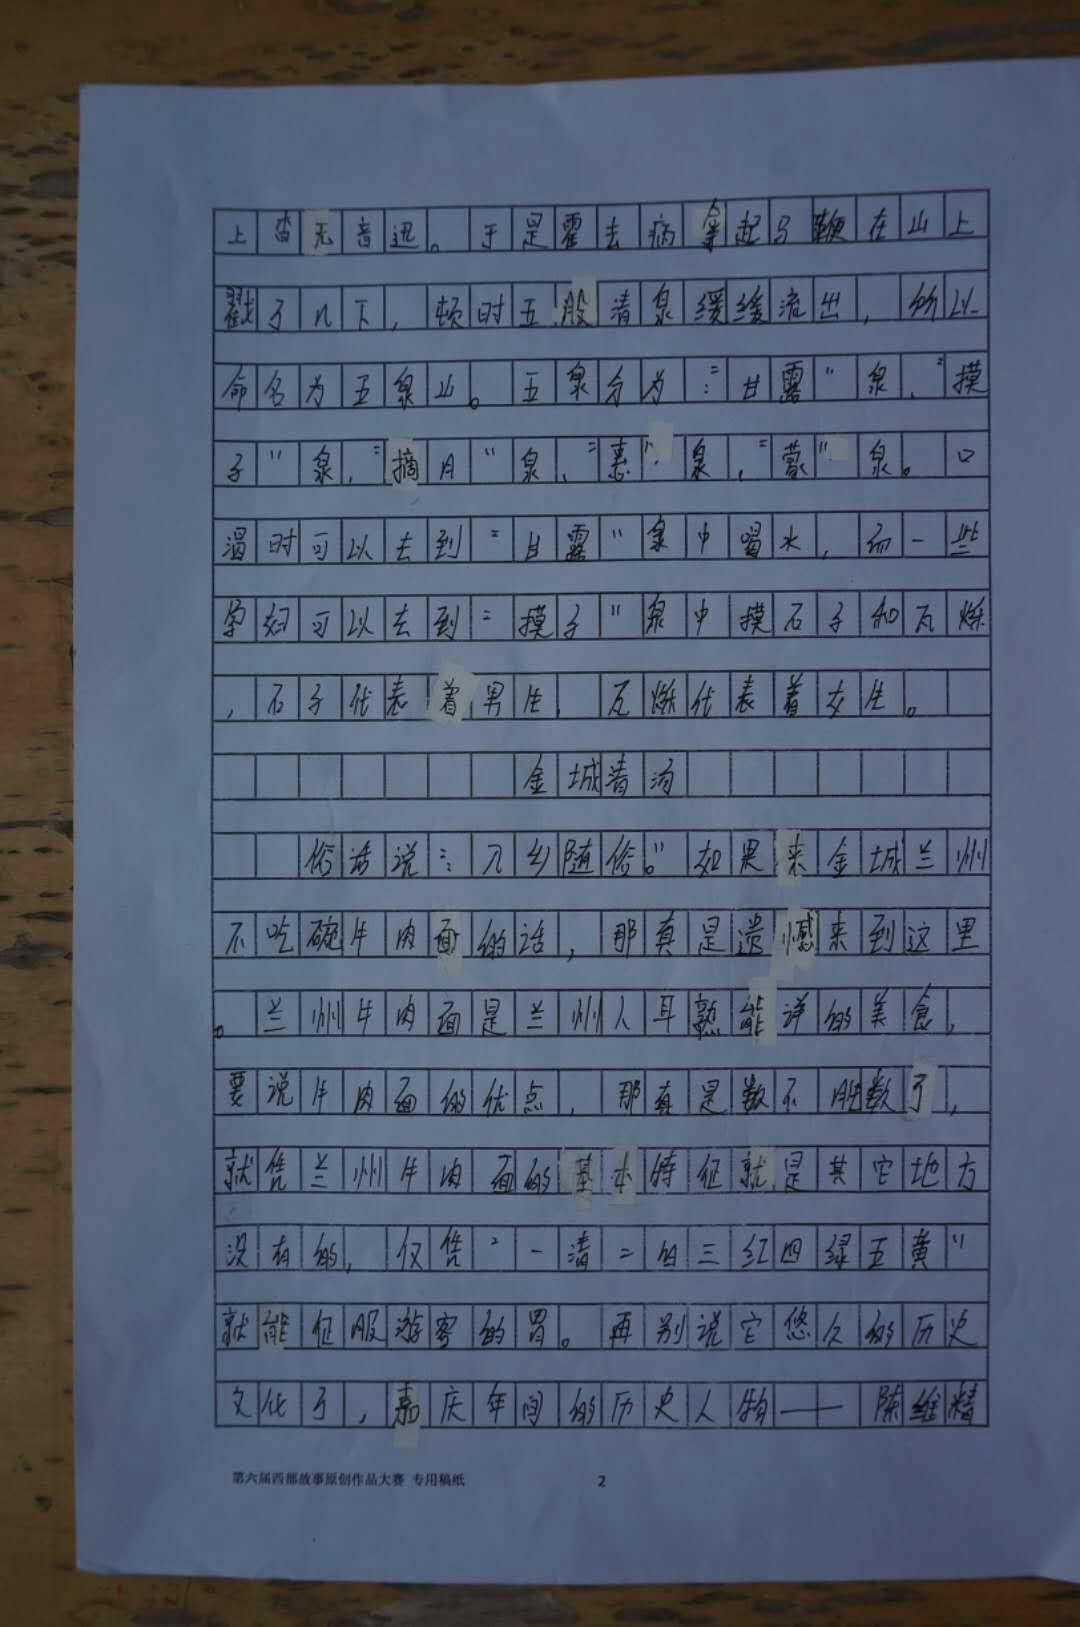 上杳无音迅。于是霍去病拿起马鞭在山上
戳了几下，顿时五股清泉缓缓流出，所以
命名为五泉山。五泉分为：“甘露”泉、“摸
子”泉、“摘月”泉、“惠”泉、“蒙”泉。口
渴时可以去到“甘露”泉中喝水，而一些
孕妇可以去到“摸子”泉中摸石子和瓦烁
，石子代表着男生，瓦烁代表着女生。
金城清汤
俗话说：“入乡随俗。”如果来金城兰州
不吃碗牛肉面的话，那真是遗憾来到这里
。兰州牛肉面是兰州人耳熟能详的美食，
要说牛肉面的优点，那真是数不胜数了，
就凭兰州牛肉面的基本特征就是其它地方
没有的，仅凭“一清二白三红四绿五黄”
就能征服游客的胃。再别说它悠久的历史
文化了，嘉庆年间的历史人物——陈维精
第六届西部故事原创作品大赛 专用稿纸 2